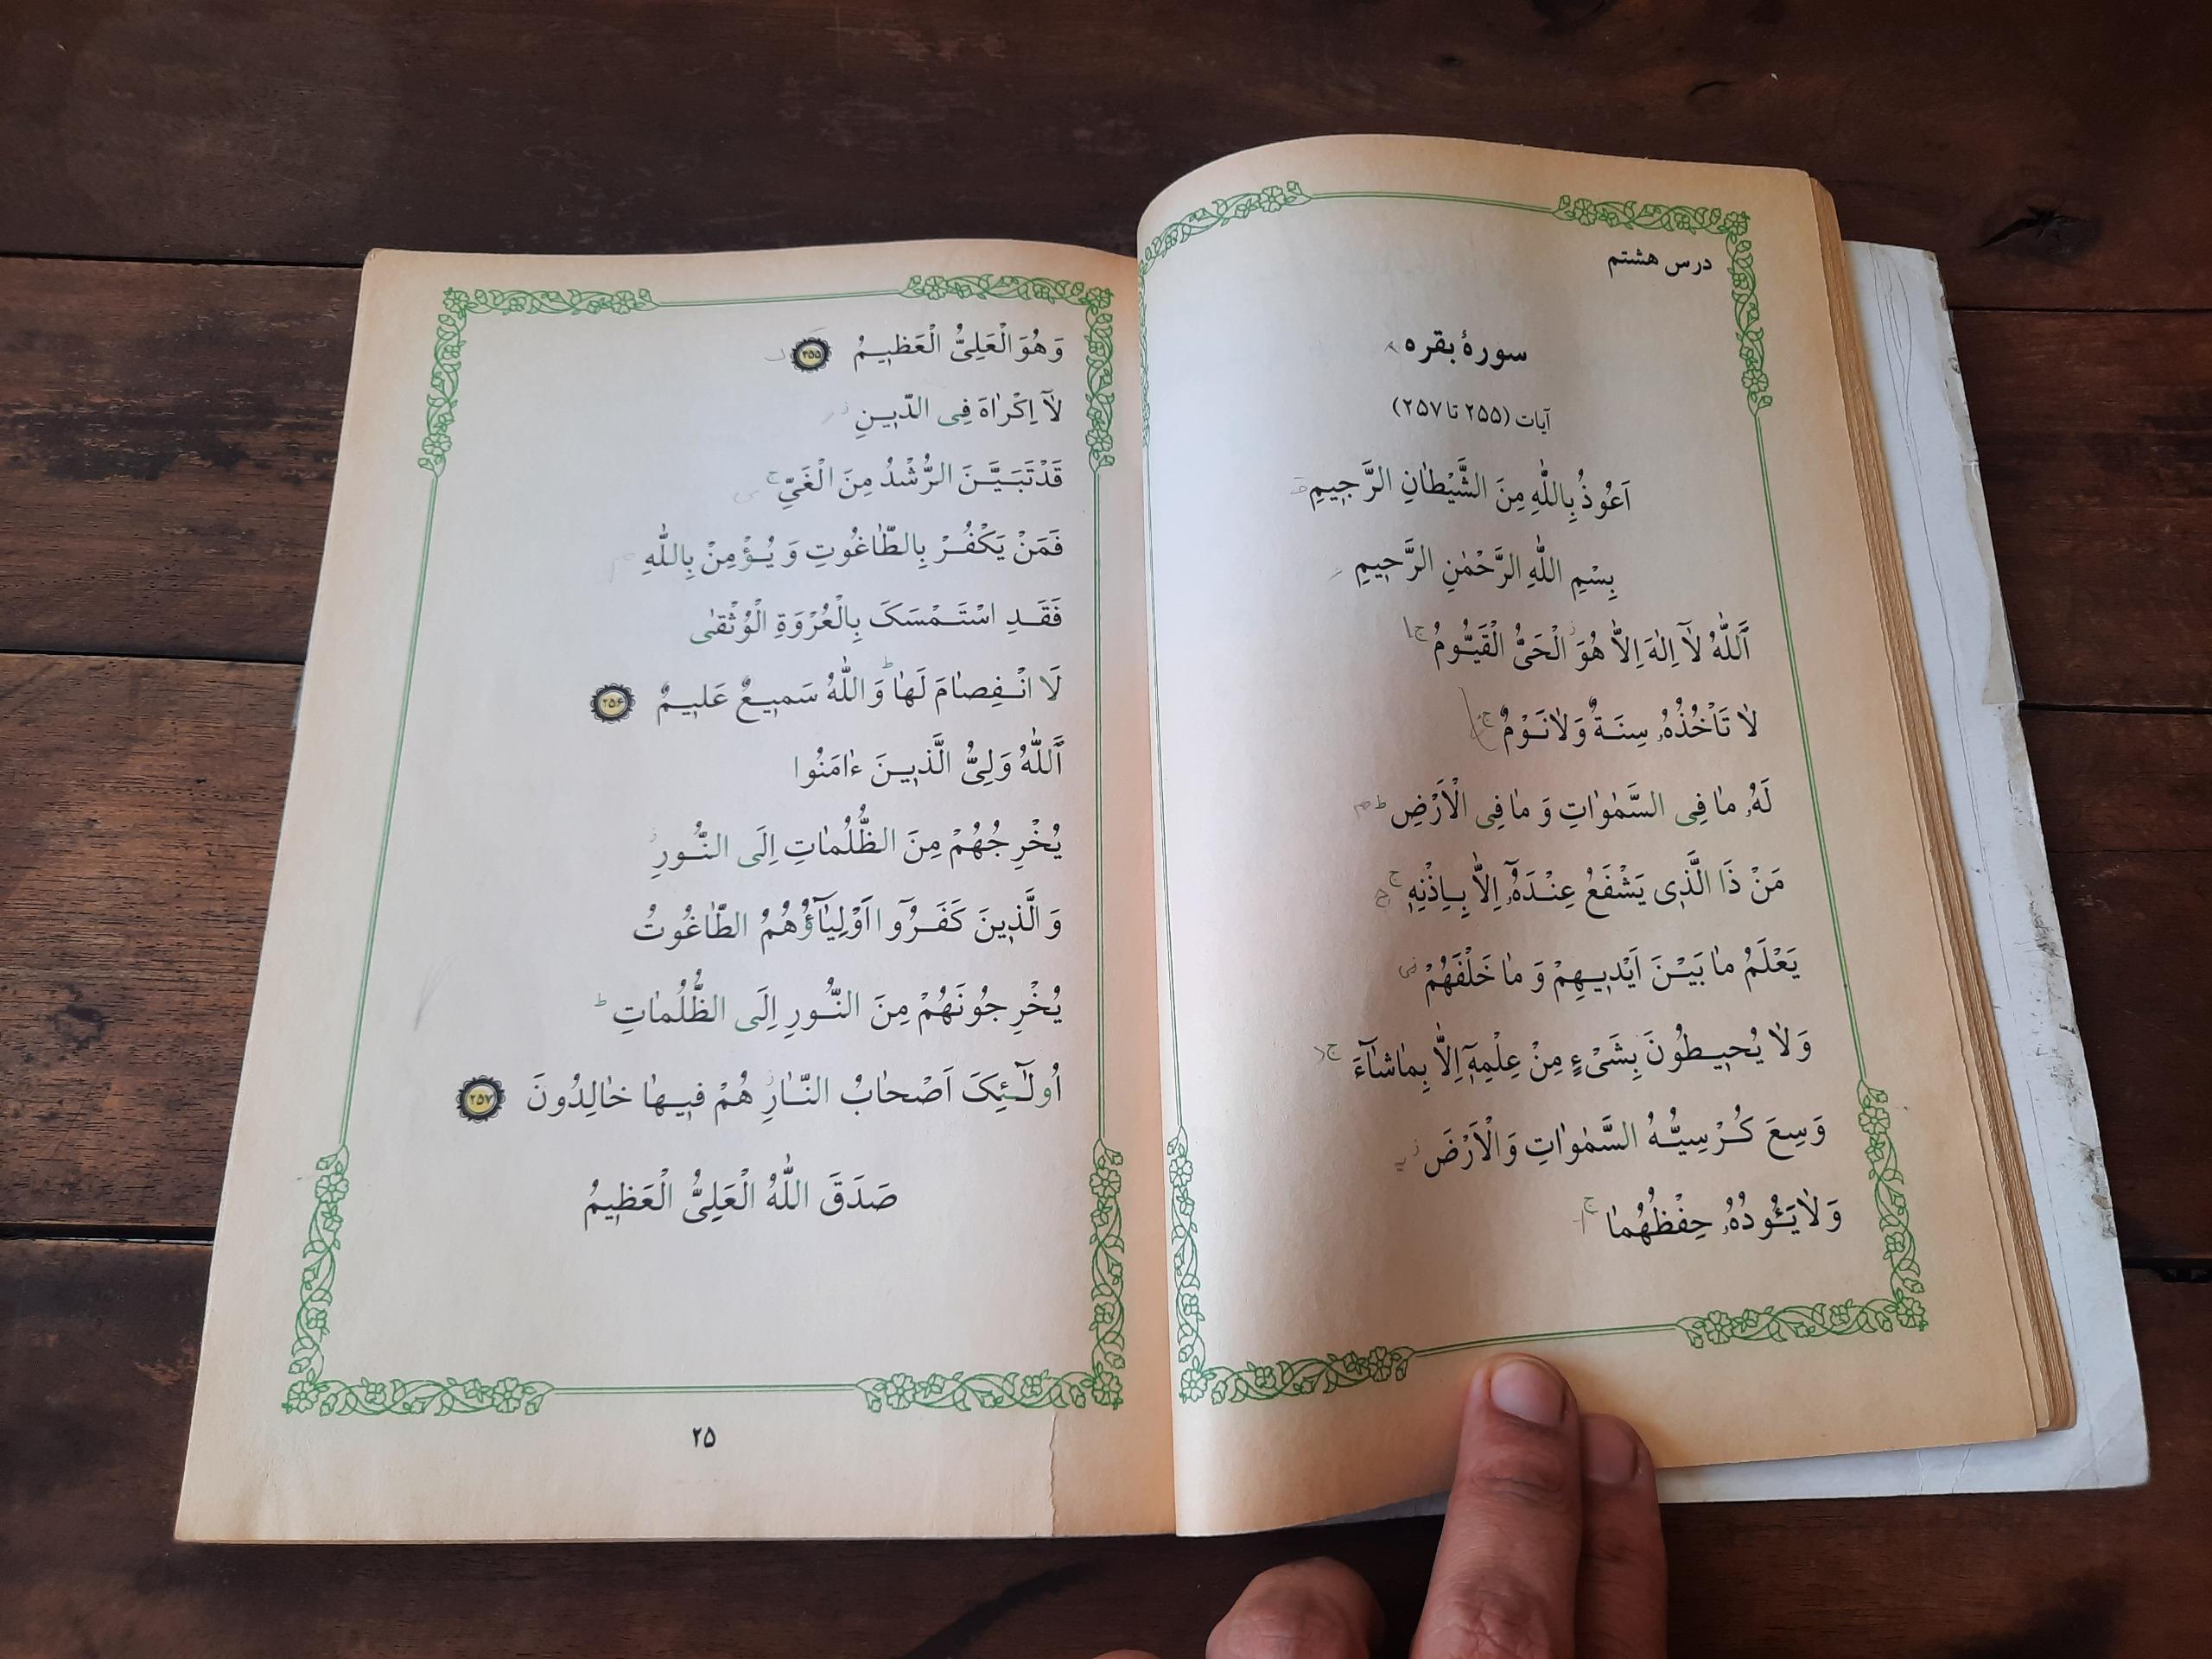 درس هشتم
سورهٔ بقره
آیات (۲۵۵ تا ۲۵۷)
اَعُوذُ بِاللّٰهِ مِنَ الشَّیْطانِ الرَّجیمِ
بِسْمِ اللّٰهِ الرَّحْمٰنِ الرَّحیمِ
اَللّٰهُ لآٰ اِلٰهَ اِلاّٰ هُوَ ز الْحَیُّ الْقَیُّومُ ج
لاٰ تَاْخُذُهُ سِنَةٌ وَلاٰنَوْمٌ ج
لَهُ مٰا فِی السَّمٰوٰاتِ وَ مٰا فِی الْاَرْضِ ط
مَنْ ذَا الَّذی یَشْفَعُ عِنْدَهُٓ اِلاّٰ بِاِذْنِهٖ ج
یَعْلَمُ مٰا بَیْنَ اَیْدیهِمْ وَ مٰا خَلْفَهُمْ
وَلاٰ یُحیطُونَ بِشَیْءٍ مِنْ عِلْمِهٖٓ اِلاّٰ بِمٰاشٰآءَ ج
وَسِعَ کُرْسِیُّهُ السَّمٰوٰاتِ وَالْاَرْضَ ز
وَلاٰیَئُودُهُ حِفْظُهُمٰا ج
وَهُوَ الْعَلِیُّ الْعَظیمُ ۲۵۵
لآٰ اِکْرٰاهَ فِی الدّینِ ز
قَدْتَبَیَّنَ الرُّشْدُ مِنَ الْغَیِّ ج
فَمَنْ یَکْفُرْ بِالطّٰاغُوتِ وَ یُؤْمِنْ بِاللّٰهِ
فَقَدِ اسْتَمْسَکَ بِالْعُرْوَةِ الْوُثْقیٰ
لَا انْفِصٰامَ لَهٰا ط وَاللّٰهُ سَمیعٌ عَلیمٌ ۲۵۶
اَللّٰهُ وَلِیُّ الَّذینَ ءٰامَنُوا
یُخْرِجُهُمْ مِنَ الظُّلُمٰاتِ اِلَی النُّورِ ز
وَ الَّذینَ کَفَرُوٓا اَوْلِیٰٓاؤُهُمُ الطّٰاغُوتُ
یُخْرِجُونَهُمْ مِنَ النُّورِ اِلَی الظُّلُمٰاتِ ط
اُولٰٓئِکَ اَصْحٰابُ النّٰارِ ز هُمْ فیهٰا خٰالِدُونَ ۲۵۷
صَدَقَ اللّٰهُ الْعَلِیُّ الْعَظیمُ
۲۵